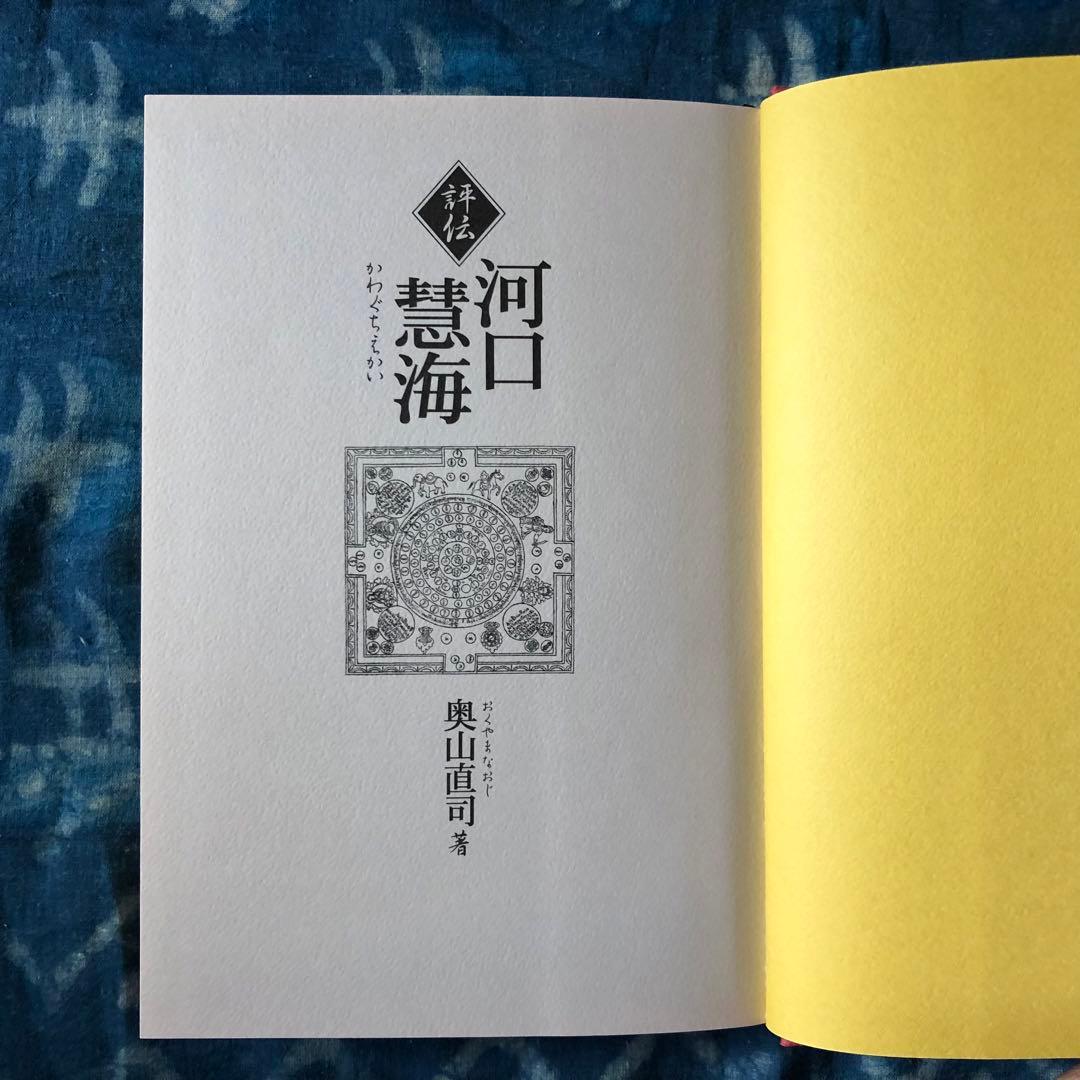 評伝
河口
慧海
かわぐちえかい
おくやまなおじ
奥山直司 著